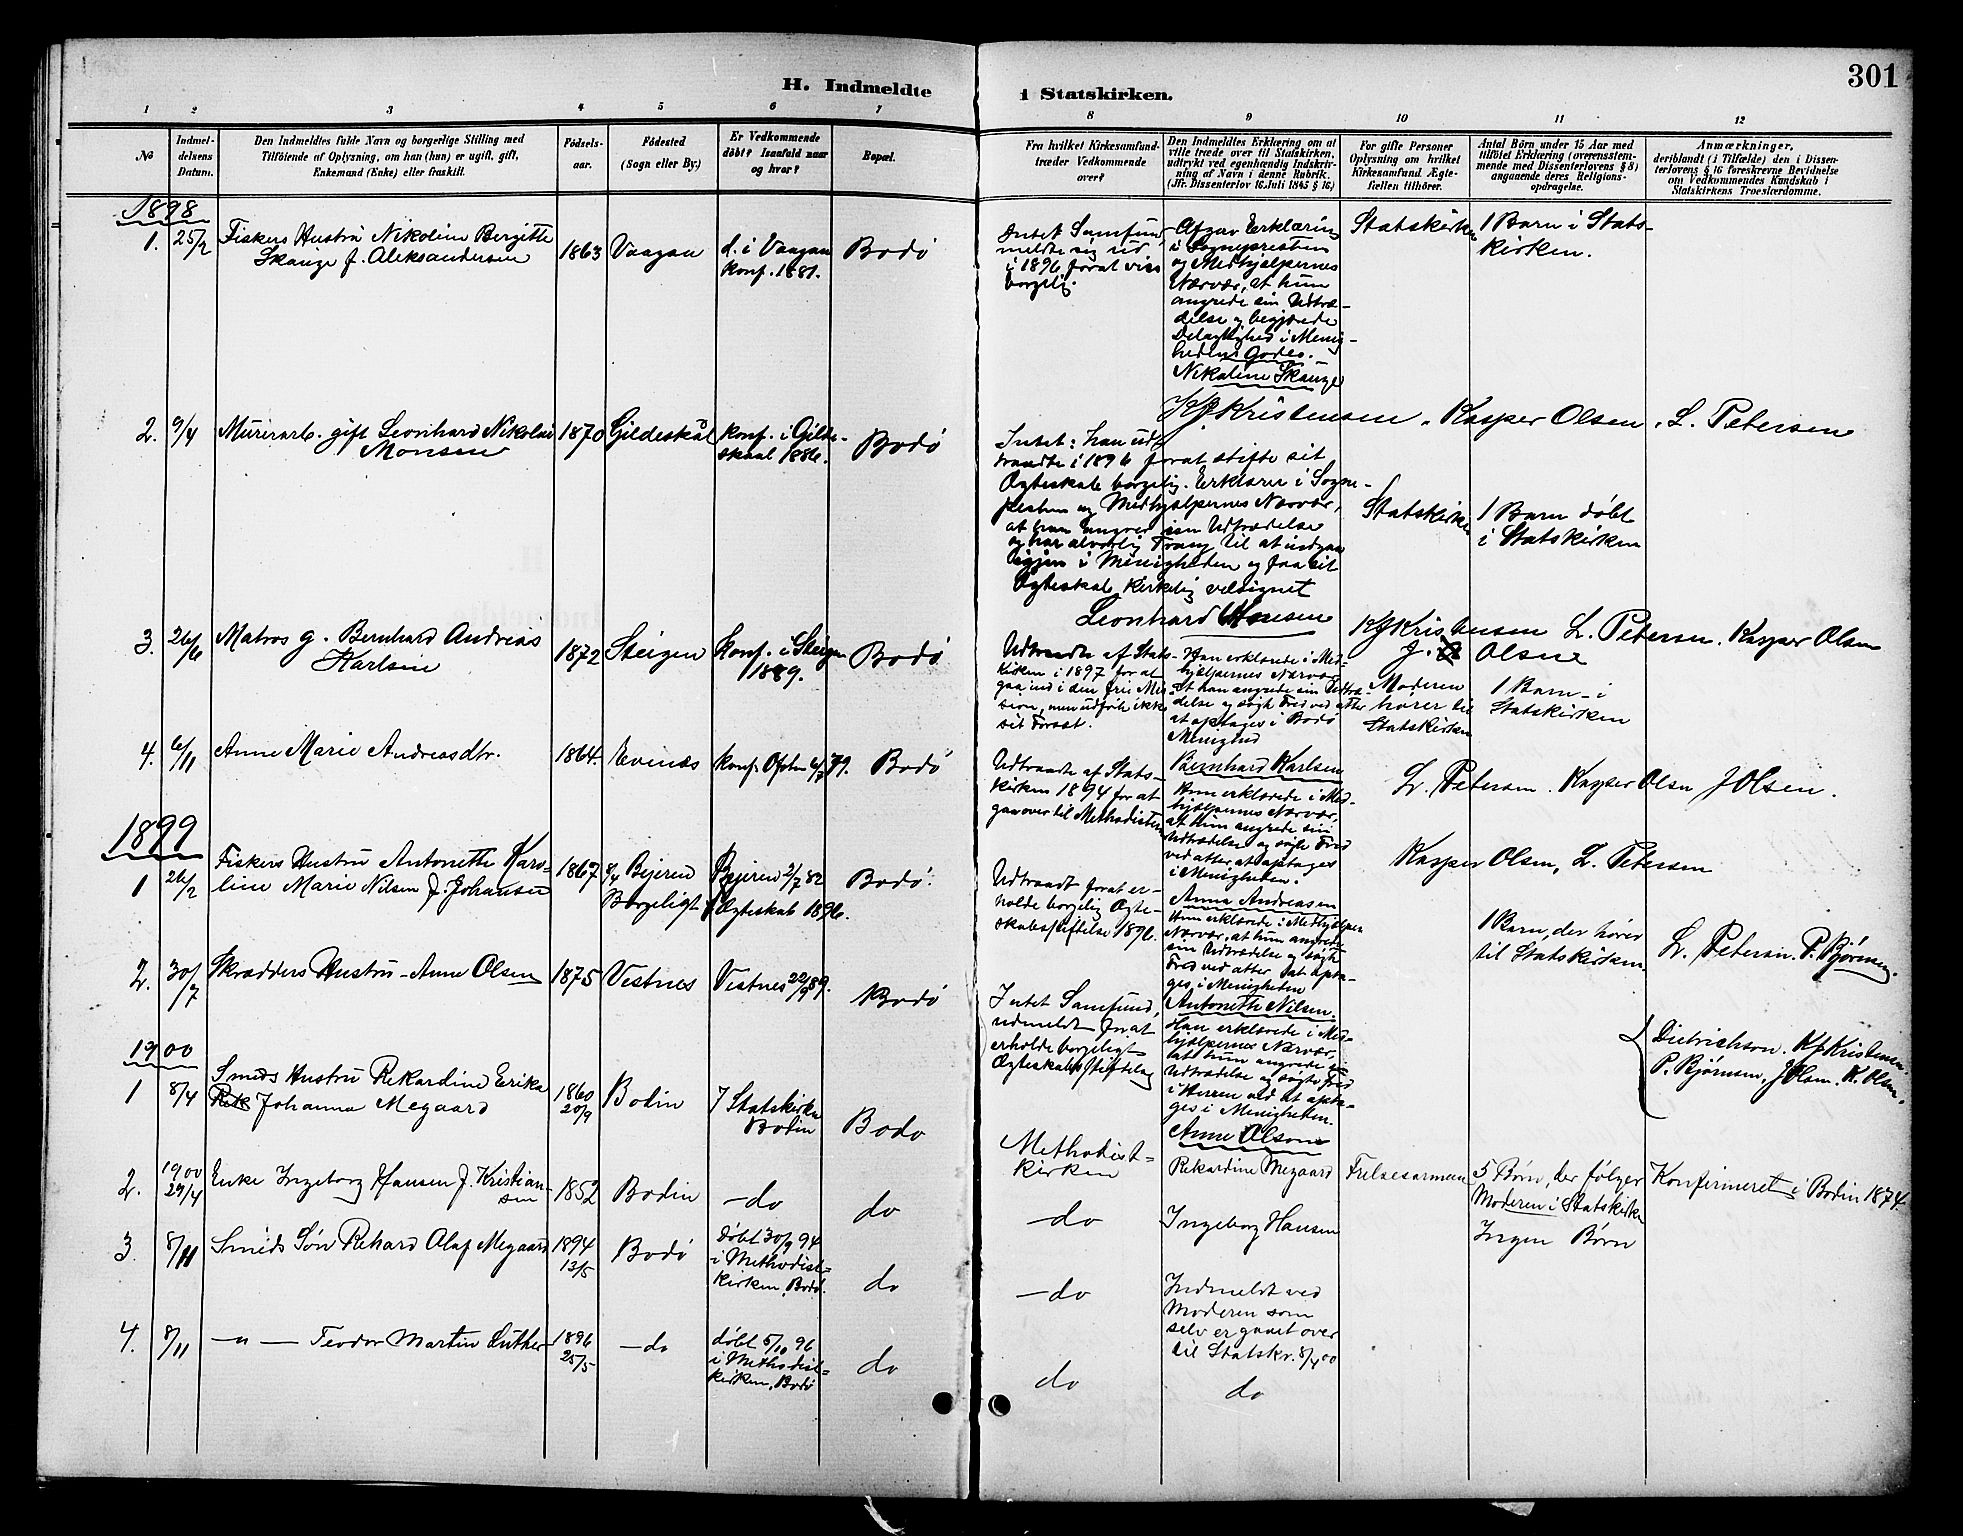 301
H. Indmeldte i Statskirken.
1 2 3 4 5 6 7 8 9 10 11 12
No
Indmel-
delsens
Datum.
Den Indmeldtes fulde Navn og borgerlige Stilling med
Tilföiende af Oplysning, om han (hun) er ugift, gift,
Enkemand (Enke) eller fraskilt.
Födsels-
aar.
Födested
(Sogn eller By.)
Er Vedkommende
döbt? Isaafald naar
og hvor?
Bopæl.
Fra hvilket Kirkesamfund-
træder Vedkommende
over?
Den Indmeldtes Erklæring om at
ville træde over til Statskirken,
udtrykt ved egenhændig Indskriv-
ning af Navn i denne Rubrik.
(Jfr. Dissenterlov 16 Juli 1845 § 16.)
For gifte Personer
Oplysning om hvilket
Kirkesamfund Ægte-
fællen tilhörer.
Antal Börn under 15 Aar med
tilföiet Erklæring (overensstem-
mende med Dissenterlovens § 8)
angaaende deres Religions-
opdragelse.
Anmærkninger,
deriblandt (i Tilfælde) den i Dissen-
terlovens § 16 foreskrevne Bevidnelse
om Vedkommendes Kundskab i
Statskirkens Troeslærdomme.
1898
1. 25/2 Fiskers Hustru Nikoline Bergitte
Skauge f. Aleksandersen
1863 Vaagan
d. i Vaagan
konf. 1881.
Bodø
Intet Samfund
meldte sig ud
i 1896 forat vies
borgelig.
Afgav Erklæring
i Sogneprestens
og Medhjælpernes
Nærvær, at hun
angrede sin Udtræ-
delse og begjærede
Delagtighed i Menig-
hedens Goder.
Nikoline Skauge
Statskirken
1 Barn i Stats-
kirken.
KJKristensen. Kasper Olsen. L. Petersen
2. 9/4 Murerarb. gift Leonhard Nikolai
Monsen
1870 Gildeskål
konf. i Gilde-
skaal 1886.
Bodø
Intet: han ud-
traadte i 1896 forat stifte sit
Ægteskab borgelig. Erklærer i Sogne-
prestens og Medhjælpernes Nærvær,
at han angrer sin Udtrædelse
og har alvorlig Trang til at indgaa
igjen i Menigheden og faa sit
Ægteskab kirkelig velsignet
Leonhard Monsen
Statskirken
1 Barn døbt
i Statskirken
KJKristensen L. Petersen. Kasper Olsen
J. Olsen
3. 26/6 Matros g. Bernhard Andreas
Karlsen
1872 Steigen
Konf. i Steigen
1889.
Bodø
Udtraadte af Stats-
kirken i 1897 for at
gaa ind i den frie Mis-
sion, men udførte ikke
sit Forsæt.
Han erklærede i Med-
hjælpernes Nærvær
at han angrede sin Udtræ-
delse og søgte Fred ved atter
at optages i Bodø
Menighed
Bernhard Karlsen
Moderen
hører til
Statskirken
1 Barn i
Statskirken
L. Petersen. Kasper Olsen JOlsen.
4. 6/11 Anne Marie Andreasdtr.
1864. Evenæs
konf. Ofoten 6/7 79.
Bodø
Udtraadte af Stats-
kirken 1894 for at
gaa over til Methodisterne
Hun erklærede i Med-
hjælpernes Nærvær,
at hun angrede sin
Udtrædelse og søgte Fred
ved atter at optages
i Menigheden.
Anna Andreasen
Kasper Olsen, L. Petersen
1899
1 26/2 Fiskers Hustru Antonette Karo-
line Marie Nilsen f. Johansen
1867 Bejeren
Borgeligt Ægteskab 1896.
Bejeren 2/7 82
Bodø.
Udtraadt forat er-
holde borgelig Ægte-
skabsstiftelse 1896.
Hun erklærede i Medhjælper
Nærvær, at hun angrede
sin Udtrædelse og søgte
Fred ved atter at opta-
ges i Menigheden
Antonette Nilsen.
1 Barn, der hører
til Statskirken.
L. Petersen. P. Bjørnsen.
2. 30/7 Skrædders Hustru Anne Olsen
1875 Vestnes
Vestnes 22/9 89.
Bodø
Intet Samfund,
udmeldt forat
erholde borgeligt
Ægteskabsstiftelse
Hun erklærede i Med-
hjælpernes Nærvær,
at hun angrede sin
Udtrædelse og søgte Fred
i Herren ved at opta-
ges i Menigheden.
Anne Olsen
Dietrichson. KJKristensen.
P. Bjørnsen, JOlsen. K. Olsen.
1900
1 8/4 Smeds Hustru Rekardine Erika
Johanna Megaard
1860
28/9
Bodin
I Statskirken
Bodin
Bodø
Methodist-
kirken
Rekardine Megaard
Frelsesarmeen
5 Børn, der følger
Moderen i Statskirken
Konfirmeret i Bodin 1874.
2. 1900
29/4
Enke Ingeborg Hansen f. Kristian-
sen
1852 Bodin
– do
do
– do
Ingeborg Hansen
Ingen Børn
3. 8/11 Smeds Søn Rekard Olaf Megaard
1894
13/5
Bodø
døbt 30/9 94
i Methodist-
kirken, Bodø.
do
– do
Indmeldt ved
Moderen som
selv er gaaet over
til Statskr. 8/4 00
4. 8/11 – " – Teodor Martin Luther
1896
25/5
– do
døbt 5/10 96
i Methodist-
kirken, Bodø
do
do
do